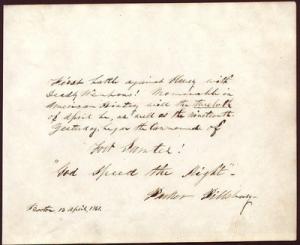 First battle against Slavery with
Deadly Weapons! Memorable in
American History will the twelfth
of April be, as well as the nineteenth
Yesterday, began the cannonade of
Fort Sumter!
"God speed the Right"
Parker Pillsbury
Boston 13 April, 1861.